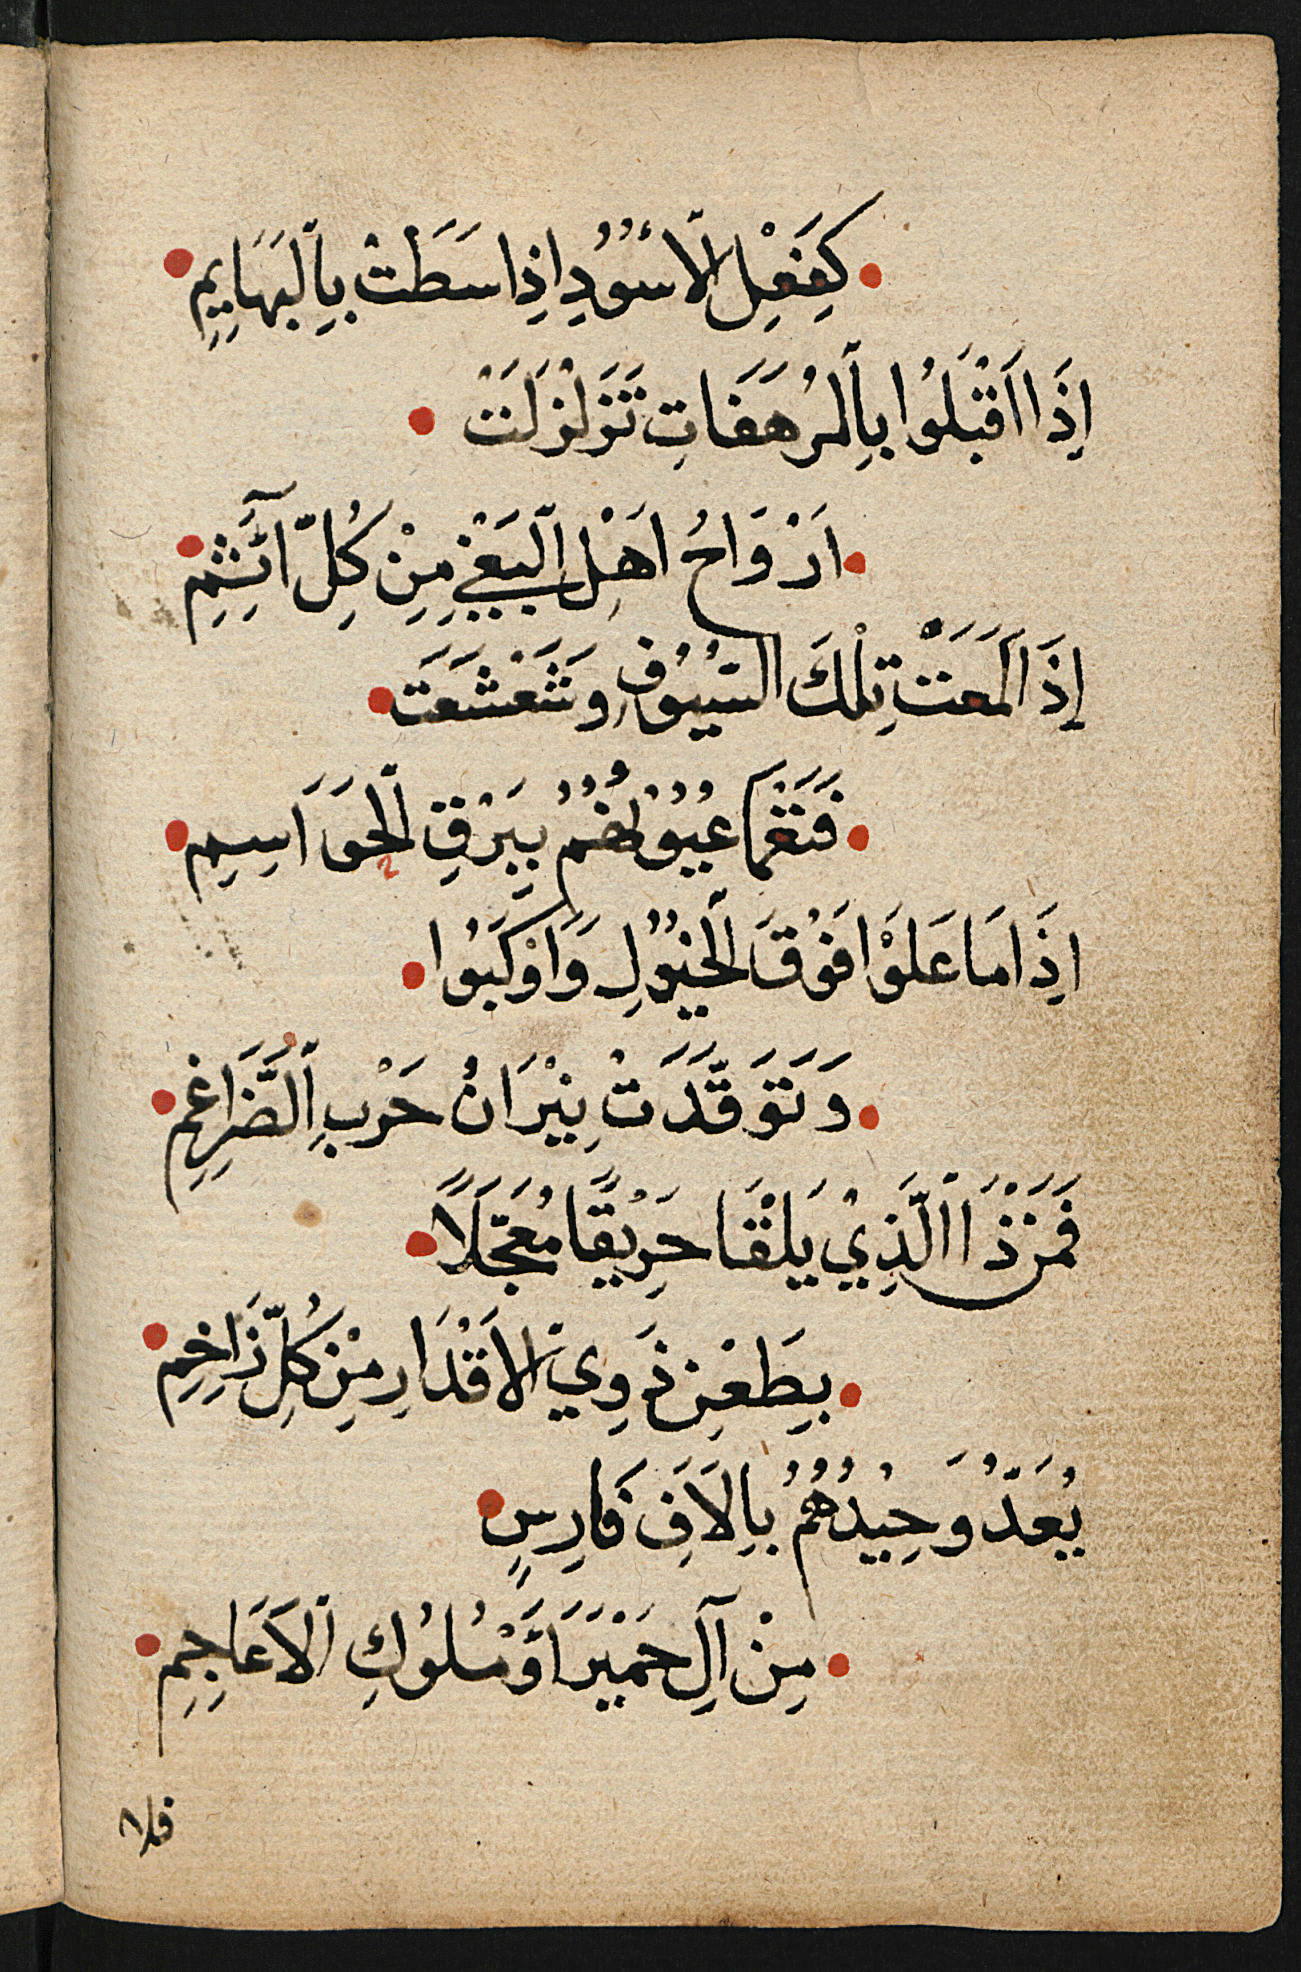 كَفِعْلِ الْأُسُودِ اِذَا سَطَتْ بِالْبَهَايِمِ
اِذَا اَقْبَلُوا بِالْمُرْهَفَاتِ تَزَلْزَلَتْ
اَرْوَاحُ اَهْلِ الْبَغْيِ مِنْ كُلِّ آئَثِمِ
إِذَا لَمَعَتْ تِلْكَ السُّيُوفِ وَشَعْشَعَتْ
فَتَعْمَا عُيُوْنُهُمُ بِبَرْقِ الْحَوَاسِمِ
اِذَا مَا عَلَوْا فَوْقَ الْخُيُوْلِ وَاَوْكَبُوا
وَتَوَقَّدَتْ نِيْرَانُ حَرْبِ الضَّرَاغِمِ
فَمَنْ ذَا الَّذِيْ يَلْقَا حَرِيْقًا مُعَجَّلًا
بِطَعْنِ ذَوِيْ الْاَقْدَارِ مِنْ كُلِّ زَاخِمِ
يُعَدُّ وَحِيْدُهُمُ بِالَافِ فَارِسٍ
مِنْ آلِ حَمْيَرَ اَوْ مُلُوكِ الْاَعَاجِمِ
فلا